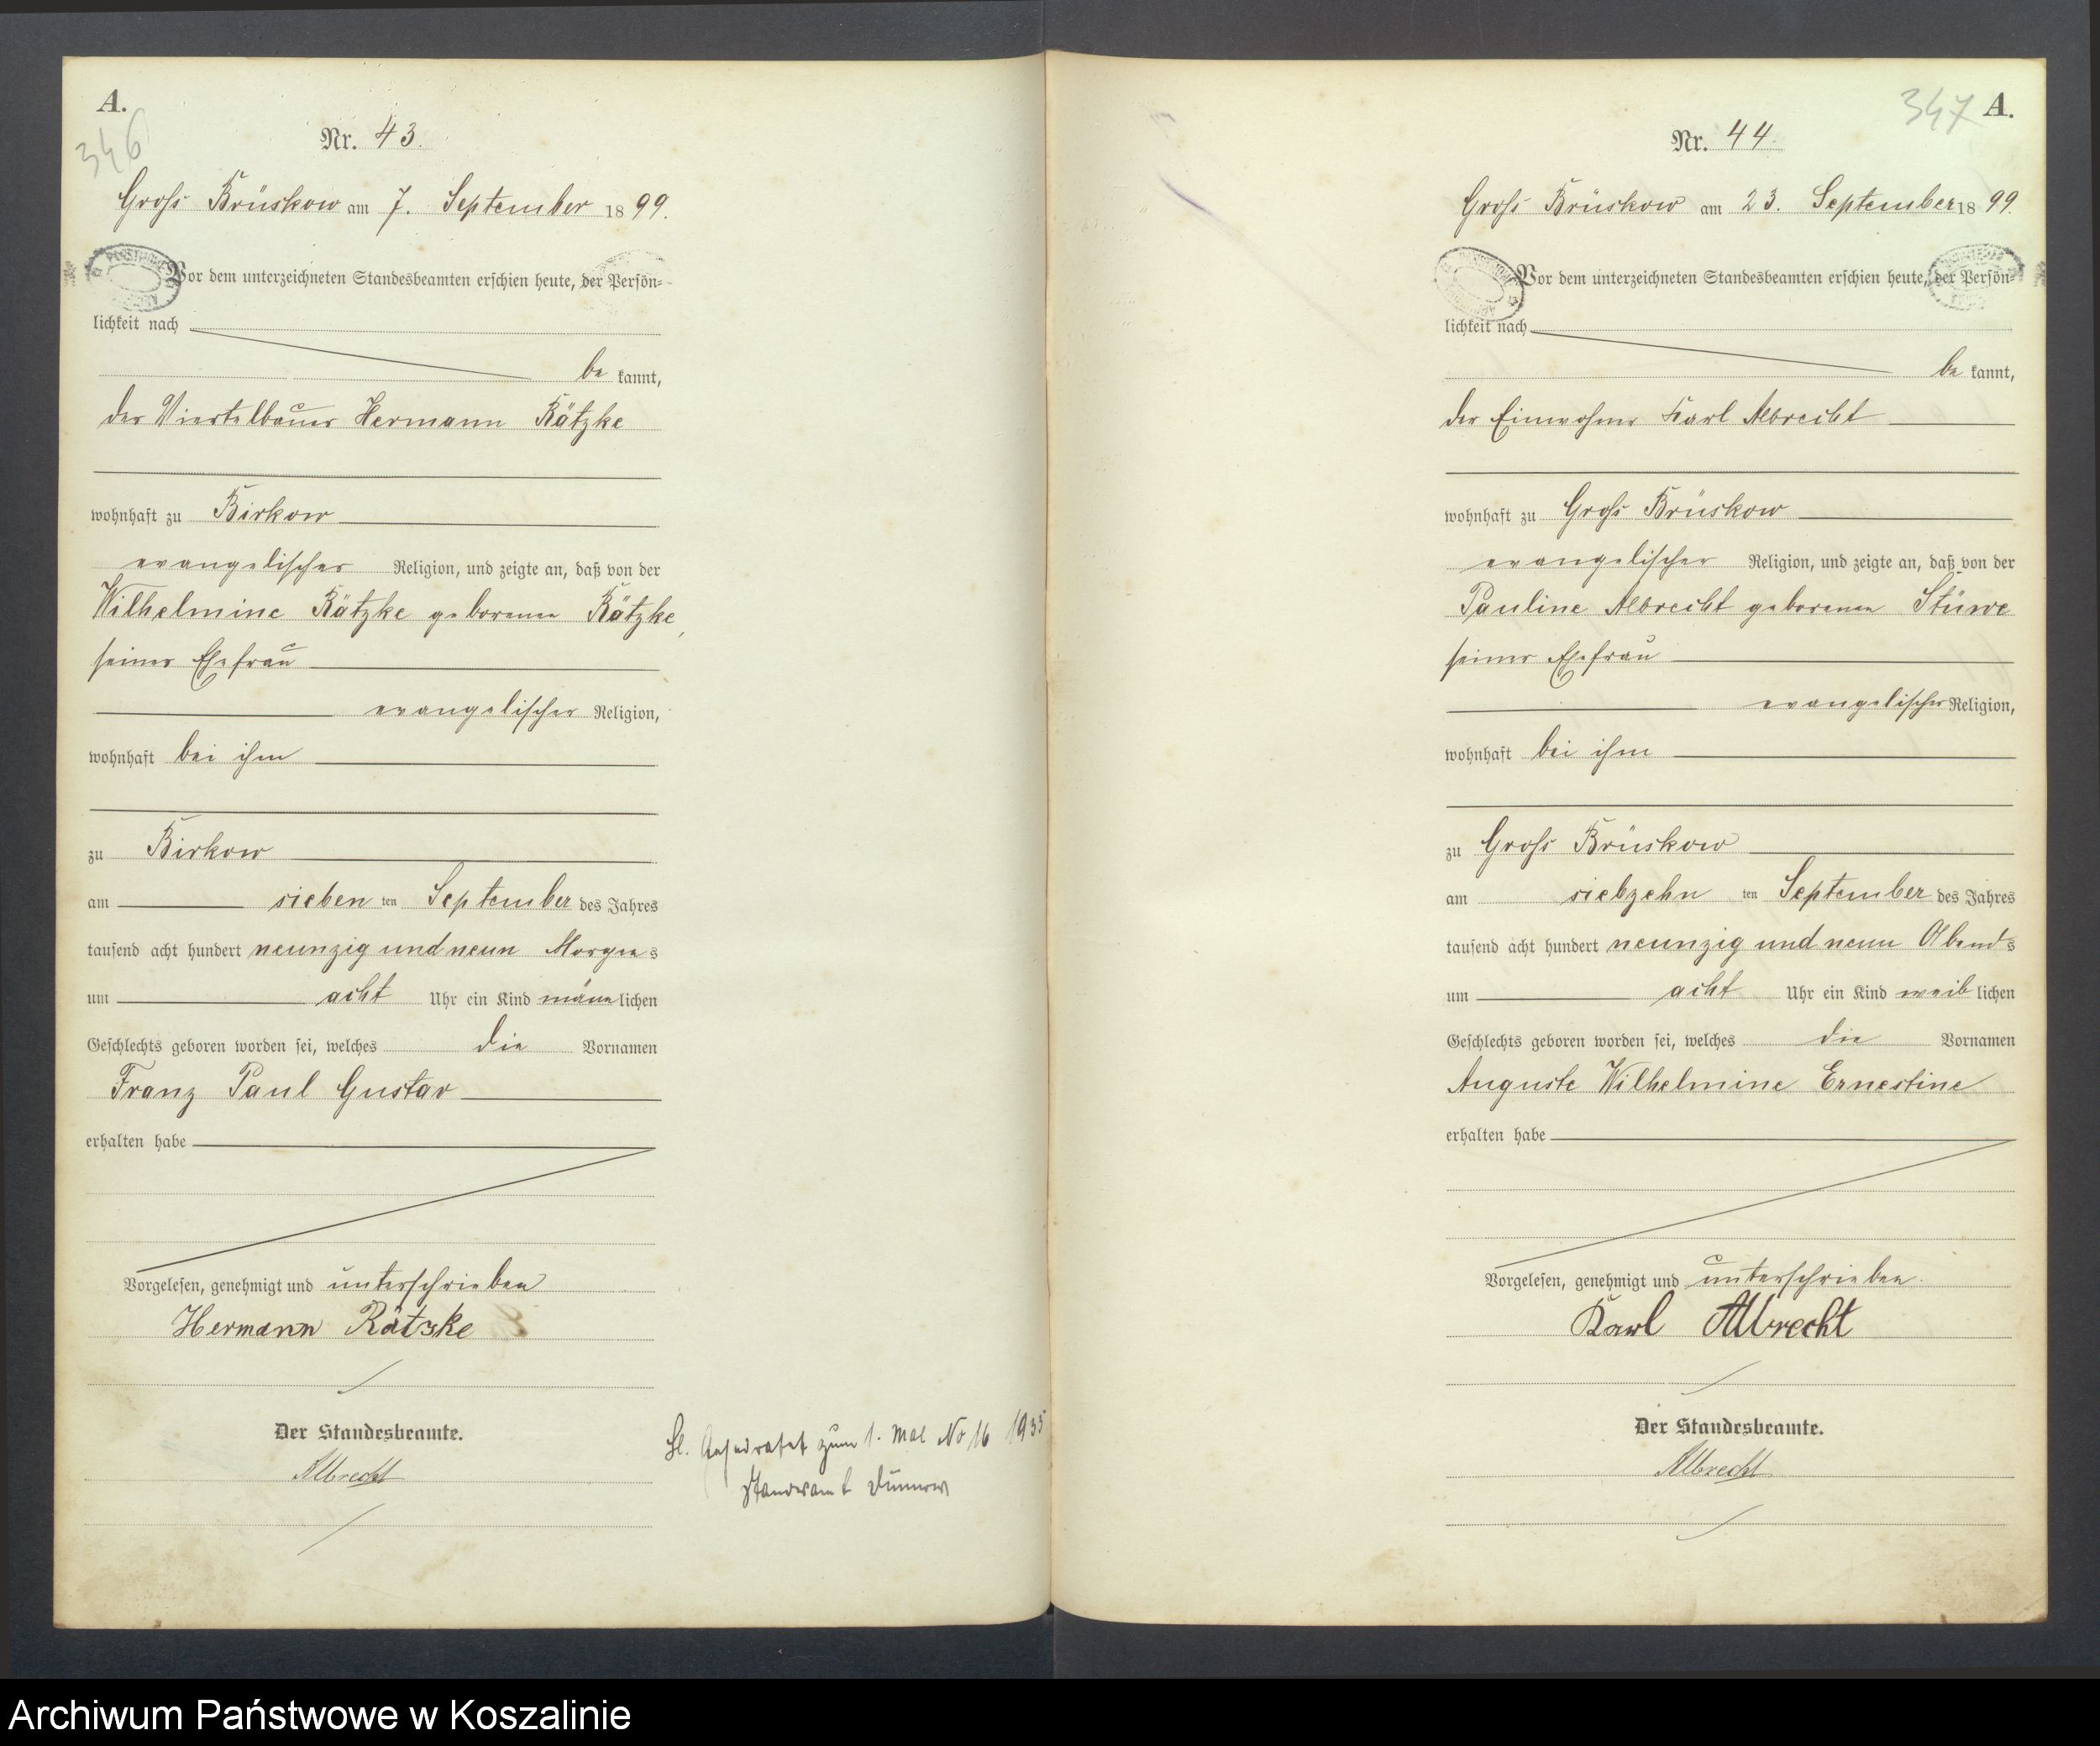 A.
346
Nr. 43.
Gross Brüskow am 7. September 1899.
Vor dem unterzeichneten Standesbeamten erschien heute, der Persön-
lichkeit nach
be kannt,
der Viertelbauer Hermann Rätzke
wohnhaft zu Birkow
evangelischer Religion, und zeigte an, daß von der
Wilhelmine Rätzke geborenen Rätzke,
seiner Ehefrau
evangelischer Religion,
wohnhaft bei ihm
zu Birkow
am sieben ten September des Jahres
tausend acht hundert neunzig und neun Morgens
um acht Uhr ein Kind männlichen
Geschlechts geboren worden sei, welches die Vornamen
Franz Paul Gustav
erhalten habe
Vorgelesen, genehmigt und unterschrieben
Hermann Rätzke
Der Standesbeamte.
Albrecht
zum 1. Mal No 16 1935
Standesamt Dünnow
347 A.
Nr. 44.
Gross Brüskow am 23. September 1899.
Vor dem unterzeichneten Standesbeamten erschien heute, der Persön-
lichkeit nach
be kannt,
der Einwohner Karl Albrecht
wohnhaft zu Gross Brüskow
evangelischer Religion, und zeigte an, daß von der
Pauline Albrecht geborenen Stüwe
seiner Ehefrau
evangelischer Religion,
wohnhaft bei ihm
zu Gross Brüskow
am siebzehn ten September des Jahres
tausend acht hundert neunzig und neun Abends
um acht Uhr ein Kind weiblichen
Geschlechts geboren worden sei, welches die Vornamen
Auguste Wilhelmine Ernestine
erhalten habe
Vorgelesen, genehmigt und unterschrieben.
Karl Albrecht
Der Standesbeamte.
Albrecht
Archiwum Państwowe w Koszalinie